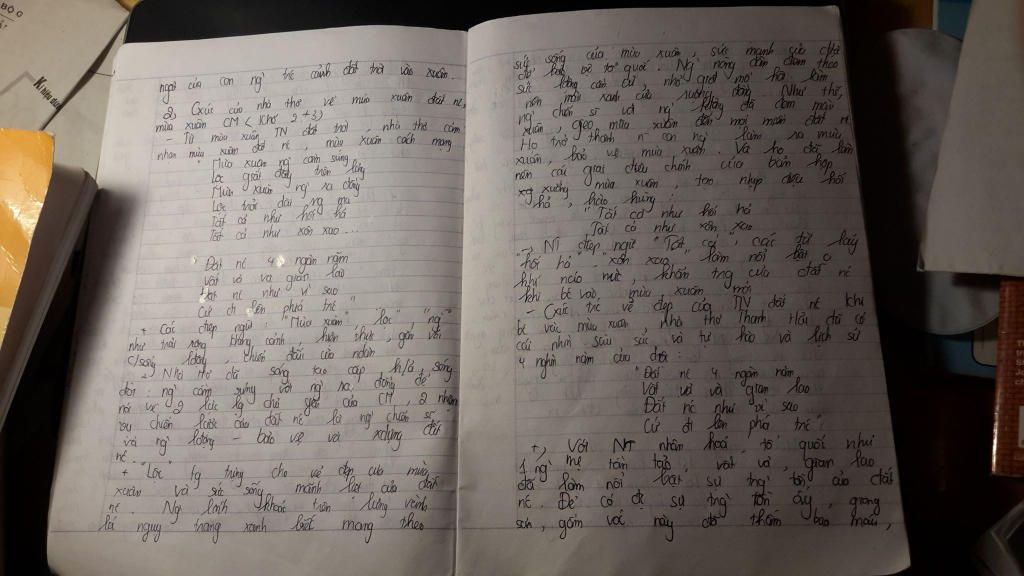 BỘ G
ngợi của con ng' trc cảnh đất trời vào xuân...
2) Cxúc của nhà thơ về mùa xuân đất nc,
mùa xuân CM (Khổ 2+3)
- Từ mùa xuân TN đất trời, nhà thơ cảm
nhận mùa xuân đất nc, mùa xuân cách mạng
Mùa xuân ng' cầm súng
Lộc giắt đầy trên lưng
Mùa xuân ng' ra đồng
Lộc trải dài ng mạ
Tất cả như hối hả
Tất cả như xôn xao...
Đất nc 4 ngàn năm
Vất vả và gian lao
Đất nc như vì sao
Cứ đi lên phía trc"
+ Các điệp ngữ "Mùa xuân" "lộc" "ng'"
như trải rộng khung cảnh, hiện thực, gắn với
c/sống lđộng, chiến đấu của ndân
+ Nhà thơ đã sáng tạo cặp h/ả sóng
đôi: ng' cầm súng với ng' ra đồng để
nói về 2 lực lg chủ yếu của CM, 2 nhiệm
vụ chiến lược của đất nc là ng' chiến sĩ
và ng' lđộng - bảo vệ và xdựng đất
nc
+ "Lộc" tg trưng cho vẻ đẹp của mùa
xuân và sức sống mãnh liệt của đất
nc. Ng' lính khoác trên lưng vành
lá nguỵ trang xanh biếc mang theo
sức sống của mùa xuân, sức mạnh của dtộc
để bảo vệ tổ quốc. Ng' nông dân đem theo
sức lao động cần cù nhỏ giọt mồ hôi làm
nên màu xanh của ruộng đồng. Như thế,
ng' chiến sĩ với ng' lđộng đã đem mùa
xuân, gieo mùa xuân đến mọi miền đất nc
Họ trở thành n~ con ng' làm ra mùa
xuân, bảo vệ mùa xuân. Và họ đã làm
nên cái giai điệu chính của bản hợp
xướng mùa xuân, tạo nhịp điệu hối
hả, hào hứng:
"Tất cả như hối hả
Tất cả như xôn xao
-> NT điệp ngữ "Tất cả", các từ láy
"hối hả" "xôn xao" làm nổi bật
khí náo nức, khẩn trg của đất nc
khi bc vào mùa xuân mới
- Cxúc trc vẻ đẹp của TN đất nc khi
bc vào mùa xuân, nhà thơ Thanh Hải đã có
cái nhìn sâu sắc và tự hào và lịch sử
4 nghìn năm của dtộc:
"Đất nc 4 ngàn năm
Vất vả và gian lao
Đất nc như vì sao
Cứ đi lên phía trc"
+, Với NT nhân hoá, tổ quốc như
1 ng' mẹ tần tảo, vất vả, gian lao
đã làm nổi bật sự trg tồn của đất
nc. Để có đc sự trg tồn ấy, giang
sơn, gấm vóc này đã thấm bao máu,